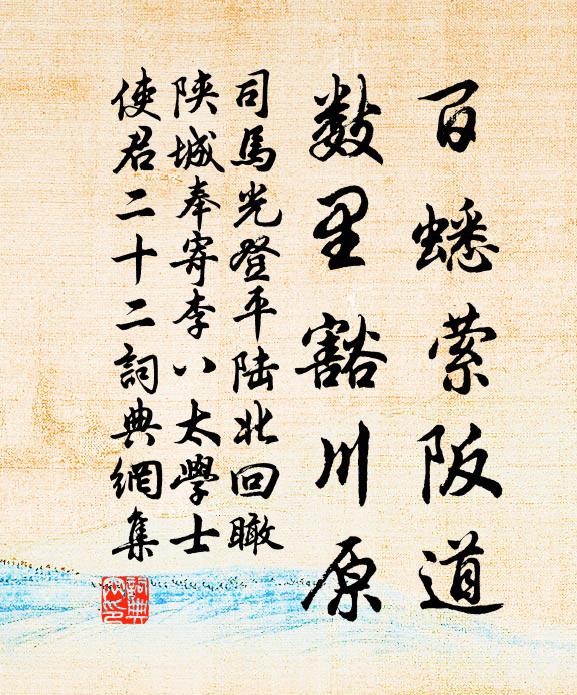 百蟠萦阪道
数里豁川原
司馬光登平陆北回瞰
陕城奉寄李八太學士
使君二十二詞典網集